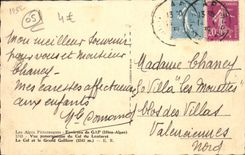 1552
05
4€
Mon meilleur souvenir
pour vous et Monsieur
Chancy.
Mes caresses affectueuses
aux enfants
Madame Chancy
Villa "Les Mouettes"
Clos des Villas
Valenciennes
Nord
Les Alpes Pittoresques - Environs de GAP (Htes-Alpes)
Vue panoramique du Col du Lautaret
Le Col et le Grand Galibier